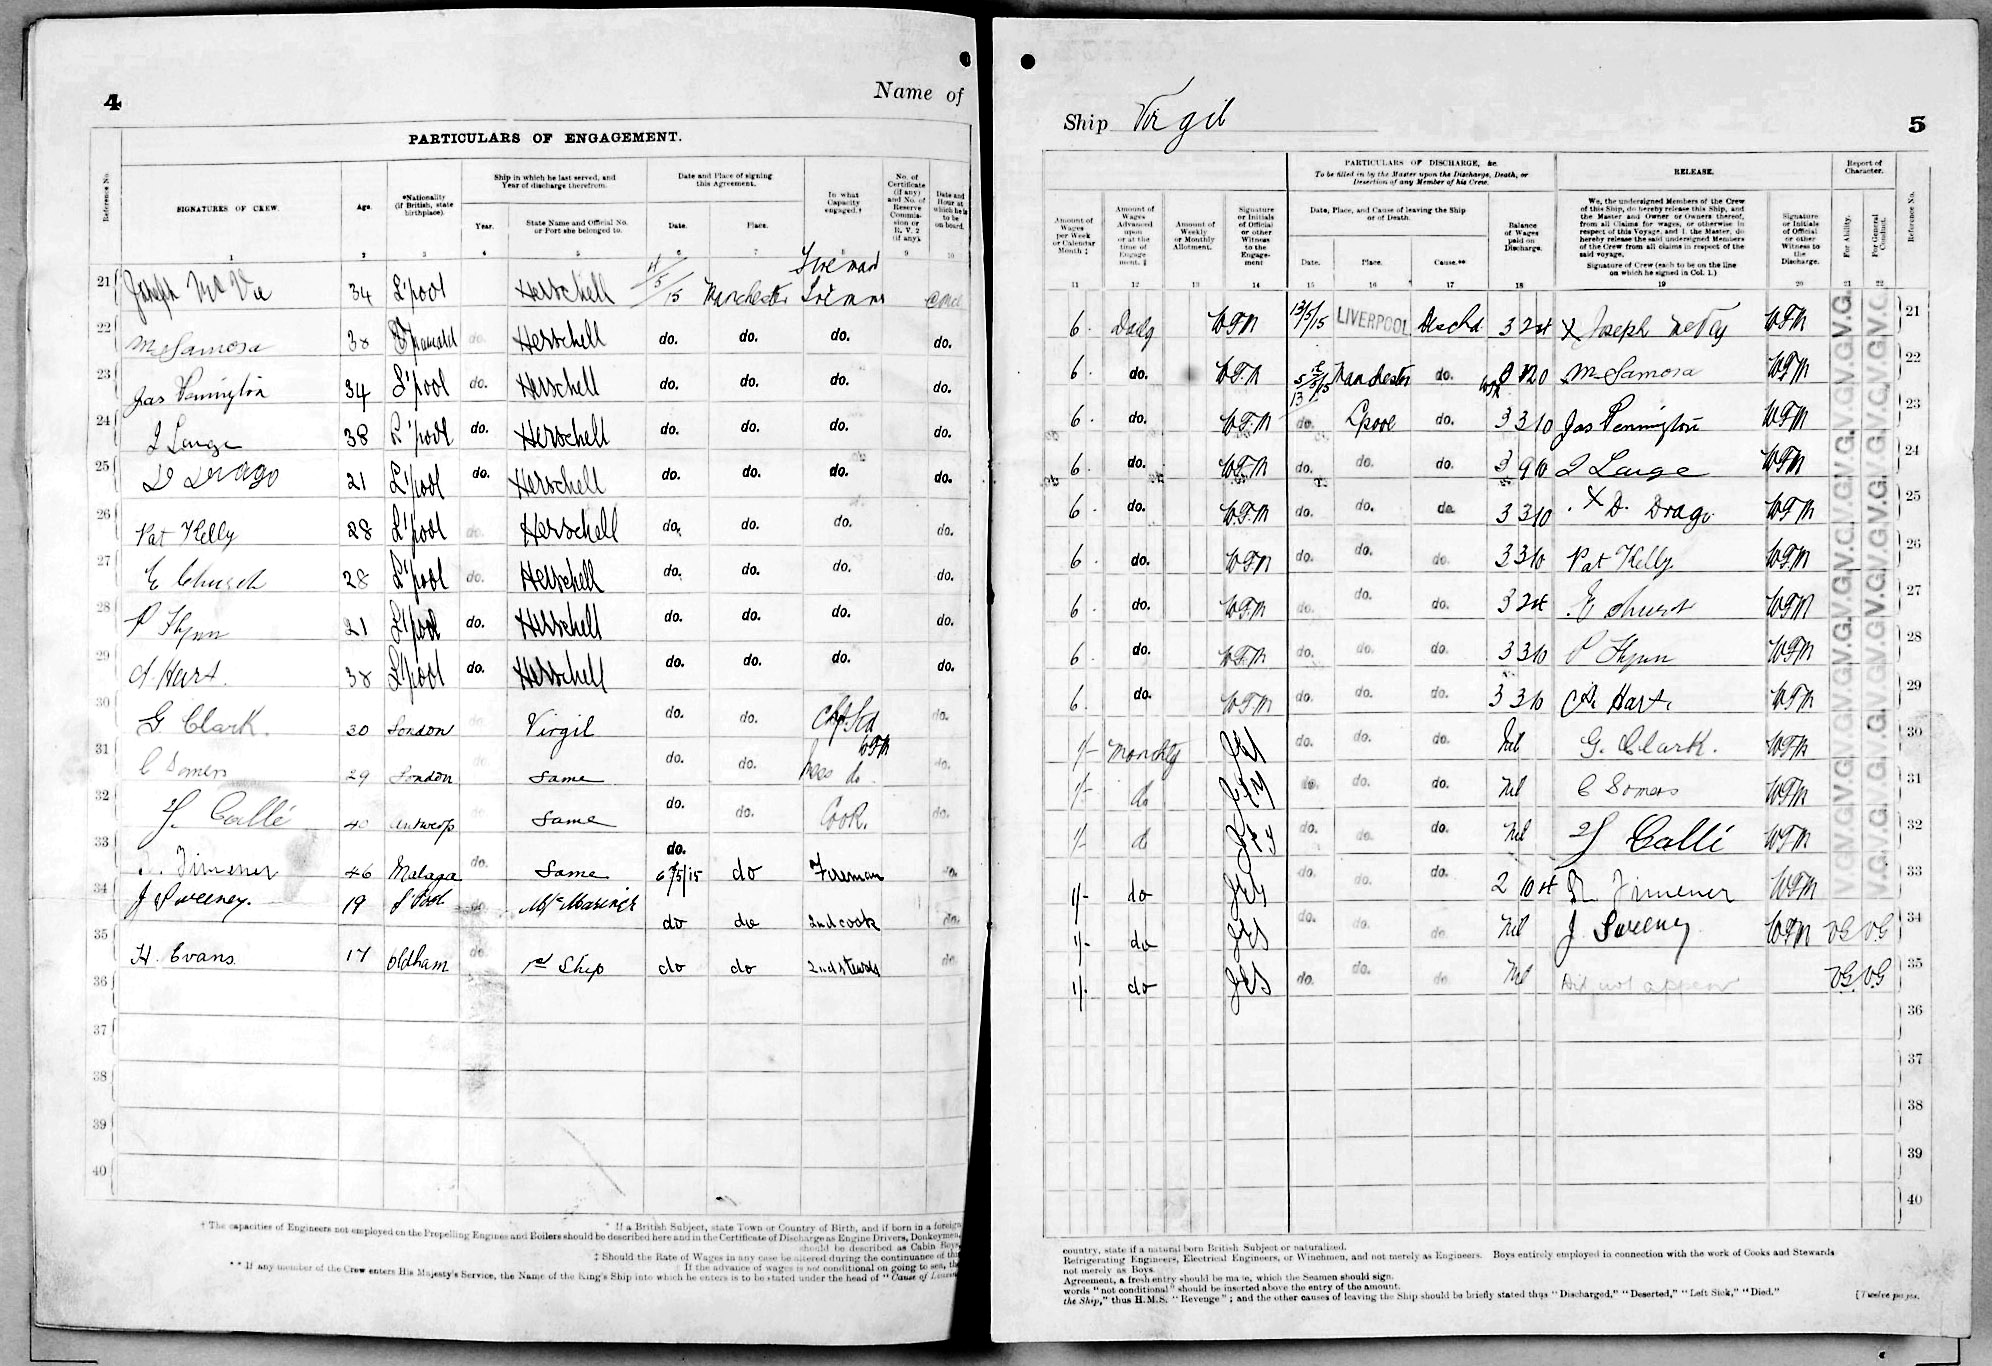 4
Name of
PARTICULARS OF ENGAGEMENT.
Reference No.
SIGNATURES OF CREW.
Age.
*Nationality (if British, state birthplace).
Ship in which he last served, and Year of discharge therefrom.
Year.
State Name and Official No. or Port she belonged to.
Date and Place of signing this Agreement.
Date.
Place.
In what Capacity engaged.†
No. of Certificate (if any) and No. of Reserve Commission or R.V. 2 (if any).
Date and Hour at which he is to be on board.
1 2 3 4 5 6 7 8 9 10
Fireman
21 Joseph McVie 34 L'pool Herschell 11/5/15 Manchester Firemn
22 M Samosa 38 do. Herschell do. do. do. do.
23 Jas Pennington 34 L'pool do. Herschell do. do. do. do.
24 J Large 38 L'pool do. Herschell do. do. do. do.
25 D Drago 21 L'pool do. Herschell do. do. do. do.
26 Pat Kelly 28 L'pool do. Herschell do. do. do. do.
27 E Church 28 L'pool do. Herschell do. do. do. do.
28 P Flynn 21 L'pool do. Herschell do. do. do. do.
29 A. Hart. 38 L'pool do. Herschell do. do. do. do.
30 G Clark. 30 London do. Virgil do. do. do.
WFM
31 C Somers 29 London Same do. do. do. do.
32 Callé 40 Antwerp do Same do. do. Cook. do.
do.
33 Jimener 46 Malaga do. Same 6/5/15 do Fireman do.
34 J Sweeney. 19 L'Pool do. do do 2nd cook do.
35 H. Evans. 17 Oldham do. 1st Ship do do do.
36
37
38
39
40
* If a British Subject, state Town or Country of Birth, and if born in a foreign
† The capacities of Engineers not employed on the Propelling Engines and Boilers should be described here and in the Certificate of Discharge as Engine Drivers, Donkeymen,
should be described as Cabin Boys,
‡ Should the Rate of Wages in any case be altered during the continuance of this
If the advance of wages is not conditional on going to sea, the
** If any member of the Crew enters His Majesty's Service, the Name of the King's Ship into which he enters is to be stated under the head of "Cause of Leaving
Ship Virgil
5
PARTICULARS OF DISCHARGE, &c.
To be filled in by the Master upon the Discharge, Death, or Desertion of any Member of his Crew.
RELEASE.
Report of Character.
Amount of Wages per Week or Calendar Month ‡
Amount of Wages Advanced upon or at the time of Engagement. ‖
Amount of Weekly or Monthly Allotment.
Signature or Initials of Official or other Witness to the Engagement
Date, Place, and Cause of leaving the Ship or of Death.
Date.
Place.
Cause.**
Balance of Wages paid on Discharge.
We, the undersigned Members of the Crew of this Ship, do hereby release this Ship, and the Master and Owner or Owners thereof, from all Claims for wages, or otherwise in respect of this Voyage, and I, the Master, do hereby release the said undersigned Members of the Crew from all claims in respect of the said voyage.
Signature of Crew (each to be on the line on which he signed in Col. 1.)
Signature or Initials of Official or other Witness to the Discharge.
For Ability.
For General Conduct.
Reference No.
11 12 13 14 15 16 17 18 19 20 21 22
6. Daily WFM 13/5/15 LIVERPOOL Dischd X Joseph McVey WFM V.G. V.G. 21
6. do. WFM Manchester do. M Samosa WFM V.G. V.G. 22
6. do. WFM do. L'pool do. 3 3 10 Jas Pennington WFM V.G. V.G. 23
6. do. WFM do. do. do. 3 9 10 J Large WFM V.G. V.G. 24
6. do. WFM do. do. do. 3 3 10 X D. Drago WFM V.G. V.G. 25
6. do. WFM do. do. do. 3 3 10 Pat Kelly WFM V.G. V.G. 26
6. do. WFM do. do. do. E Church WFM V.G. V.G. 27
6. do. WFM do. do. do. 3 3 10 P Flynn WFM V.G. V.G. 28
6. do. WFM do. do. do. 3 3 10 A Hart. WFM V.G. V.G. 29
1/- Monthly do. do. do. Nil G. Clark. WFM V.G. V.G. 30
1/- do do. do. do. Nil C Somers WFM V.G. V.G. 31
1/- do do. do. do. Nil Callé WFM V.G. V.G. 32
1/- do do. do. do. Jimener WFM V.G. V.G. 33
1/- do do. do. do. Nil J. Sweeney WFM VG VG 34
1/- do do. do. do. Nil Did not appear VG VG 35
36
37
38
39
40
country, state if a natural born British Subject or naturalized.
Refrigerating Engineers, Electrical Engineers, or Winchmen, and not merely as Engineers. Boys entirely employed in connection with the work of Cooks and Stewards
not merely as Boys.
Agreement, a fresh entry should be made, which the Seamen should sign.
words "not conditional" should be inserted above the entry of the amount.
the Ship," thus H.M.S. "Revenge"; and the other causes of leaving the Ship should be briefly stated thus "Discharged," "Deserted," "Left Sick," "Died."
[Twelve pages.